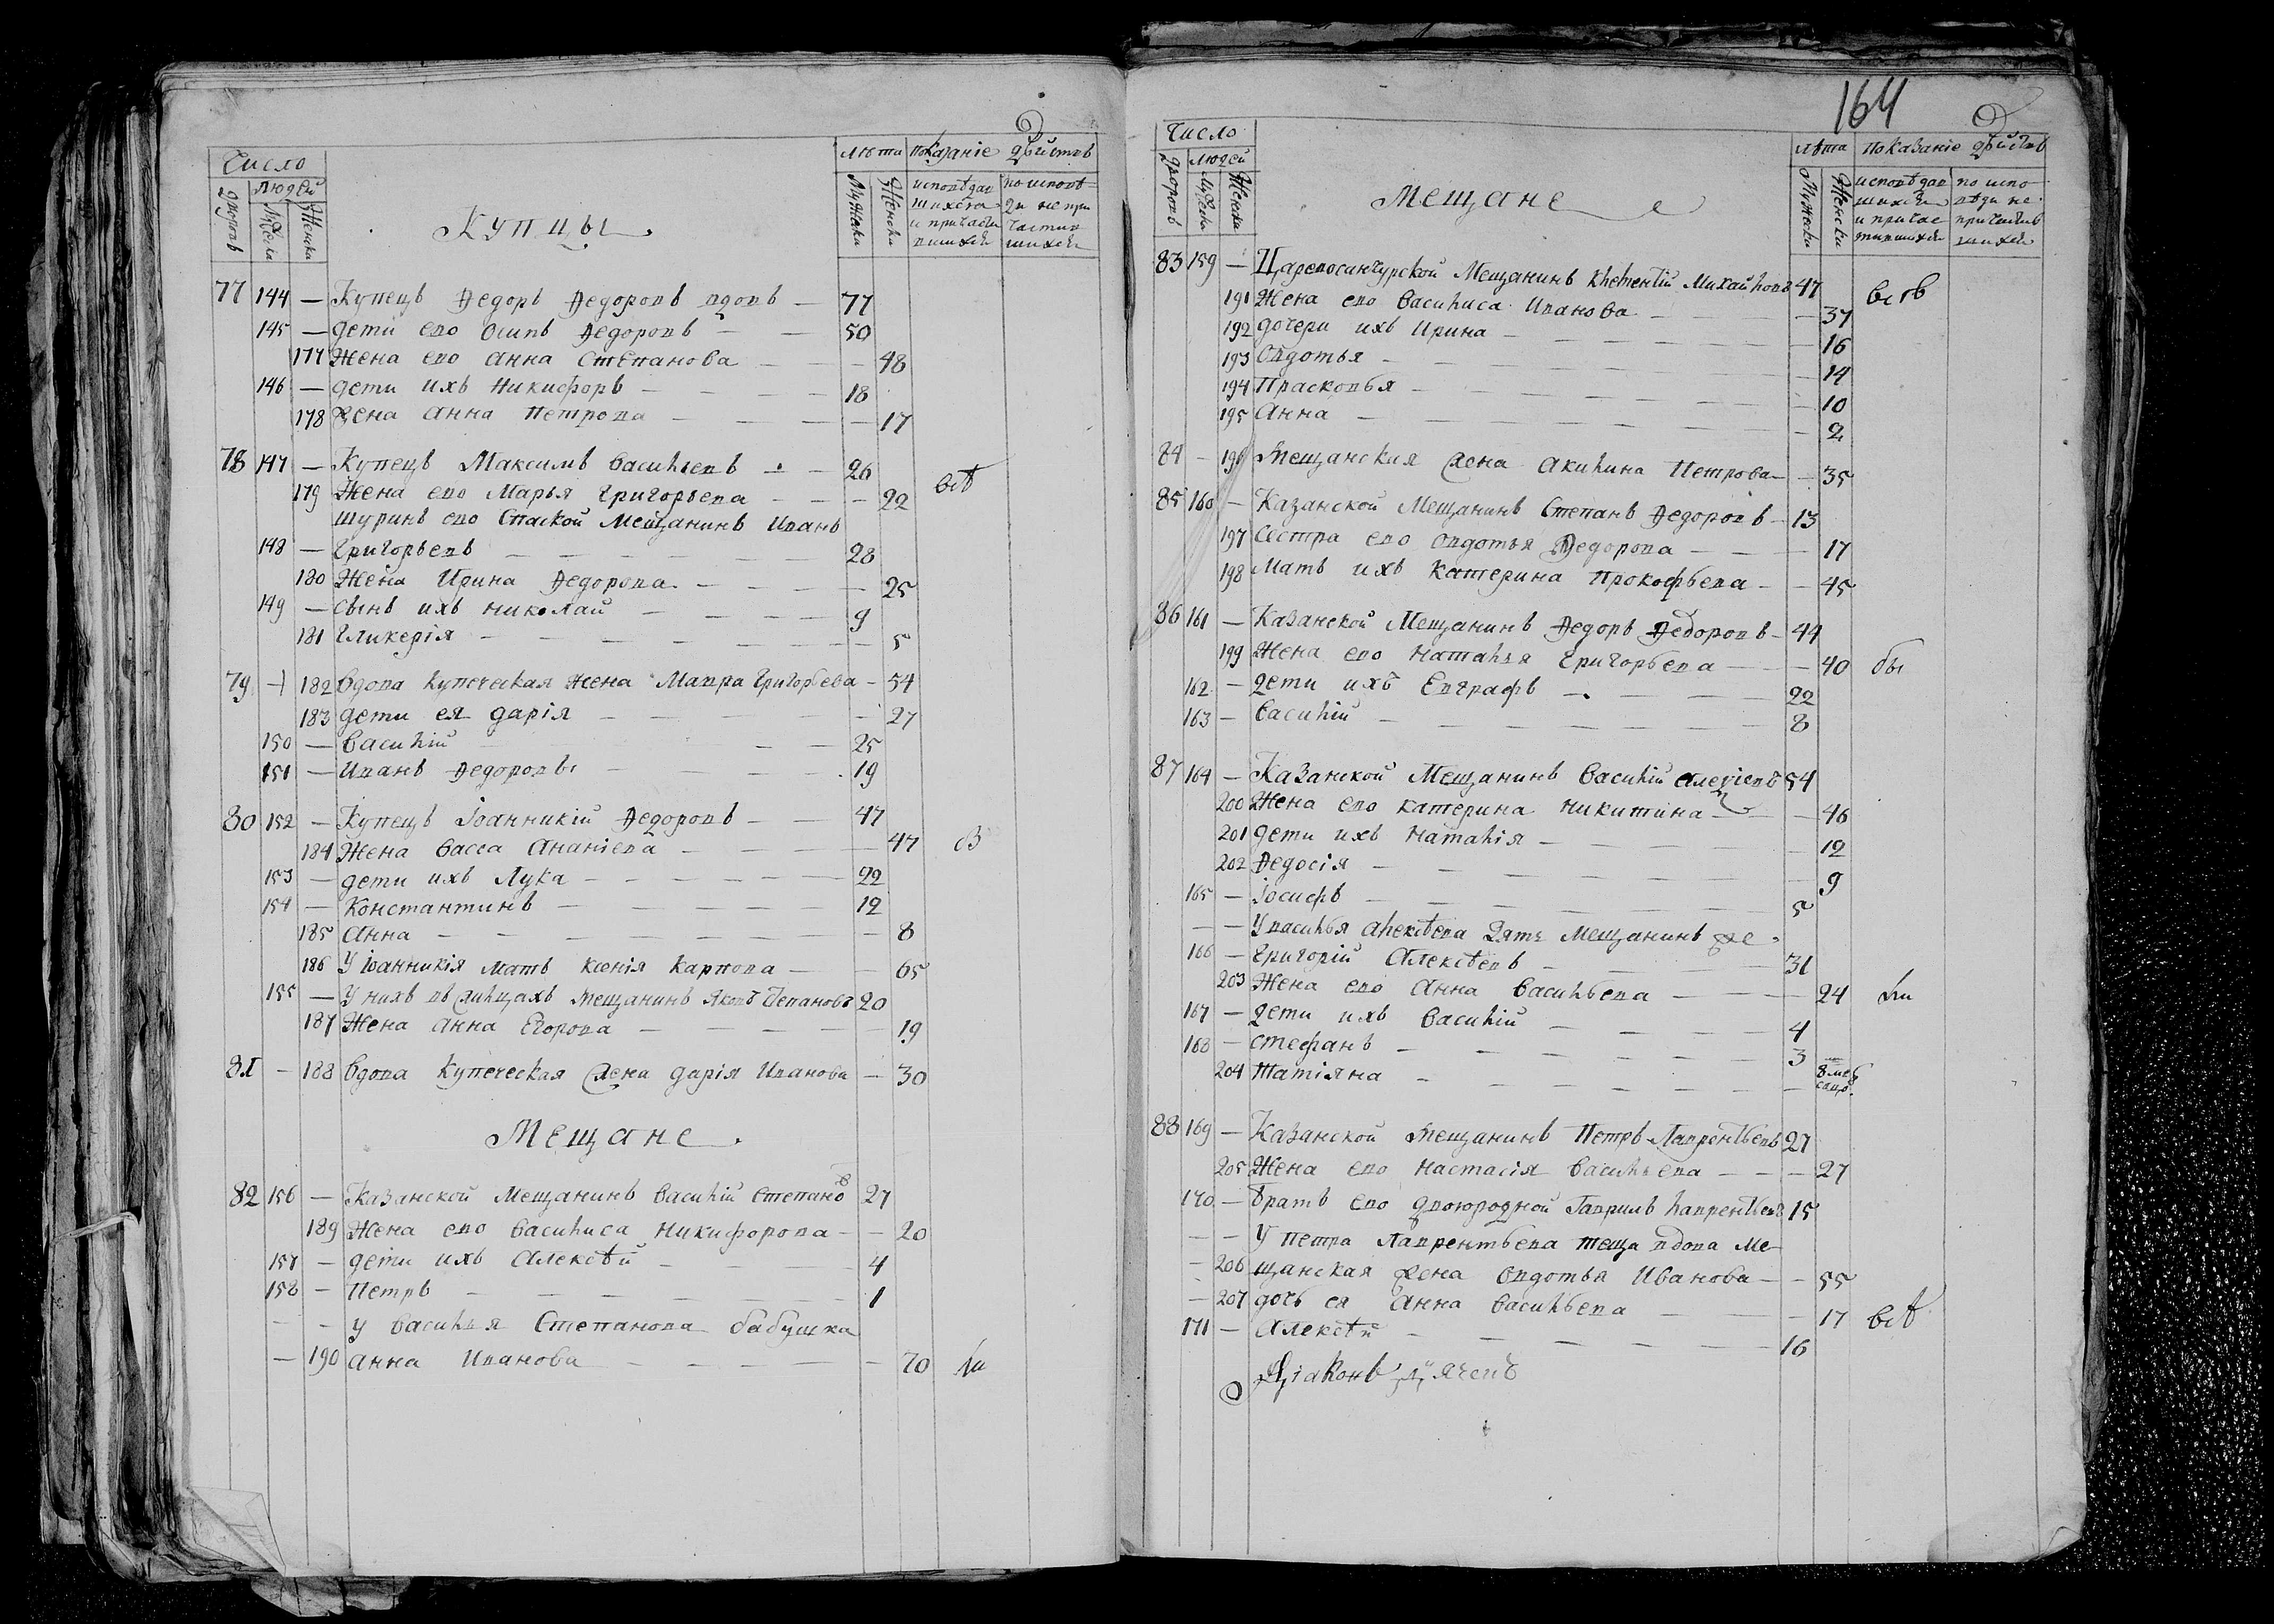 Число
дворовъ
людей
Мужеска
Женска
Купцы
лѣта
Мужеска
Женска
показаніе дѣйствъ
исповѣдав
шихся
и причасти
вшихся
по исповѣ
ди не при
частив
шихся
77 144 — Купецъ Ѳедоръ Ѳедоровъ вдовъ — 77
145 — дети ево Осипъ Ѳедоровъ — — 50
177 Жена ево Анна Степанова — — — 48
146 — дети ихъ Никифоръ — — — — 18
178 Жена Анна Петрова — — — — 17
78 147 — Купецъ Максимъ Васильевъ — — 26
179 Жена ево Марья Григорьева — — — 22 всѣ
Шуринъ ево Спаской Мещанинъ Иванъ
148 — Григорьевъ — — — — — — 28
180 Жена Ирина Ѳедорова — — — — 25
149 — Сынъ ихъ Николай — — — — 9
181 Гликерія — — — — — — 5
79 — 182 Вдова купеческая жена Мавра Григорьева — 54
183 дети ея Дарія — — — — — 27
150 — Василій — — — 25
151 — Иванъ Ѳедоровы — — — — 19
80 152 — Купецъ Іоанникій Ѳедоровъ — — 47
184 Жена Васса Ананіева — — — — 47
153 — дети ихъ Лука — — — — — 22
154 — Константинъ — — — — — 12
185 Анна — — — — — — — 8
186 У Іоанникія мать Ксенія Карпова — — 65
155 — У нихъ въ жильцахъ мещанинъ Яковъ Степановъ 20
187 Жена Анна Егорова — — — — 19
81 — 188 Вдова Купеческая жена Дарія Иванова — 30
Мещане.
82 156 — Казанской Мещанинъ Василій Степановъ 27
189 Жена ево Василиса Никифорова — — 20
157 — дети ихъ Алексѣй — — — — 4
158 — Петръ — — — — — — 1
— — У Василья Степанова бабушка
— 190 Анна Иванова — — — — — 70
164
Число
дворовъ
людей
Мужеска
Женска
Мещане
лѣта
Мужески
Женски
показаніе дѣйствъ
исповѣдав
шихся
и причас
тившихся
по испо
вѣди не
причастив
шихся
83 159 — Царевосанчурской Мещанинъ Клементій Михайловъ 47
191 Жена ево Василиса Иванова — — — — 37
192 дочери ихъ Ирина — — — — — — 16
193 Овдотья — — — — — — — 14
194 Прасковья — — — — — — — 10
195 Анна — — — — — — — 2
84 — 196 Мещанская жена Акилина Петрова — — 35
85 160 — Казанской Мещанинъ Степанъ Ѳедоровъ — 13
197 Сестра ево Овдотья Ѳедорова — — — 17
198 Мать ихъ Катерина Прокофьева — — 45
86 161 — Казанской Мещанинъ Ѳедоръ Ѳедоровъ — 44
199 Жена ево Наталья Григорьева — — — 40 бы
162 — дети ихъ Евграфъ — — — — 22
163 — Василій — — — — — — 8
87 164 — Казанской Мещанинъ Василій Алексіевъ 54
200 Жена ево Катерина Никитина — — — 46
201 дети ихъ Наталія — — — — — 12
202 Ѳедосія — — — — — — — 9
165 — Іосифъ — — — — — — 5
— — У Василья Алексѣева зять мещанинъ же
166 — Григорій Алексѣевъ — — — — 31
203 Жена ево Анна Васильева — — — 24 ли
167 — дети ихъ Василій — — — — 4
168 — Стефанъ — — — — — — 3
204 Татіяна — — — — — — 8 мѣ
сяцъ.
88 169 — Казанской Мещанинъ Петръ Лаврентьевъ 27
205 Жена ево Настасія Васильева — — — 27
170 — братъ ево двоюродной Гаврилъ Лаврентьевъ 15
— — У Петра Лаврентьева теща вдова Ме-
— 206 щанская жена Овдотья Иванова — — 55
— 207 дочь ея Анна Васильева — — — 17 всѣ
171 — Алексѣй — — — — — — 16
Діаконъ